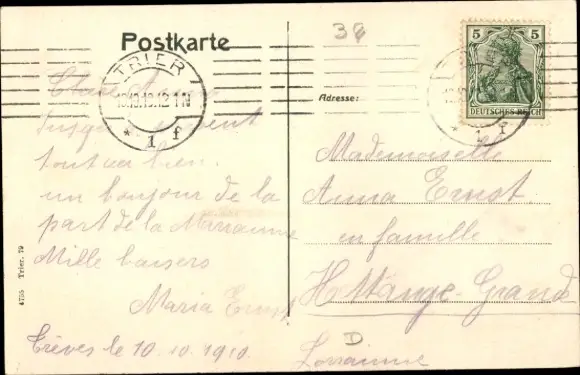 Postkarte
38
TRIER
10.10.10.12-1N
* 1 f
5 5
DEUTSCHES REICH
* 1 f
Adresse:
tout va bien.
un bonjour de la
part de la Marianne
Mille baisers
Maria Ernst
Trèves le 10.10.1910.
Mademoiselle
Anna Ernst
en famille
Hettange Grande
D
Lorrainne
4755 Trier. 79